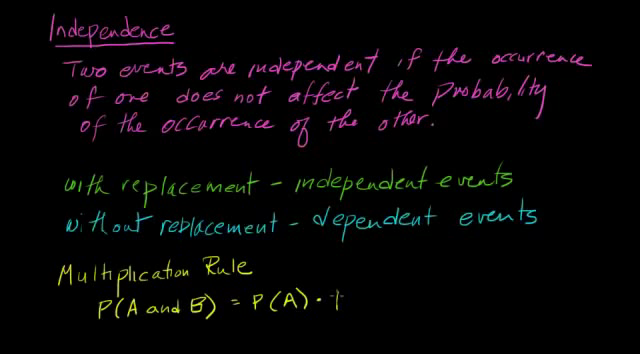 Independence
Two events are independent if the occurrence
of one does not affect the probability
of the occurrence of the other.
with replacement - independent events
without replacement - dependent events
Multiplication Rule
P(A and B) = P(A) ·